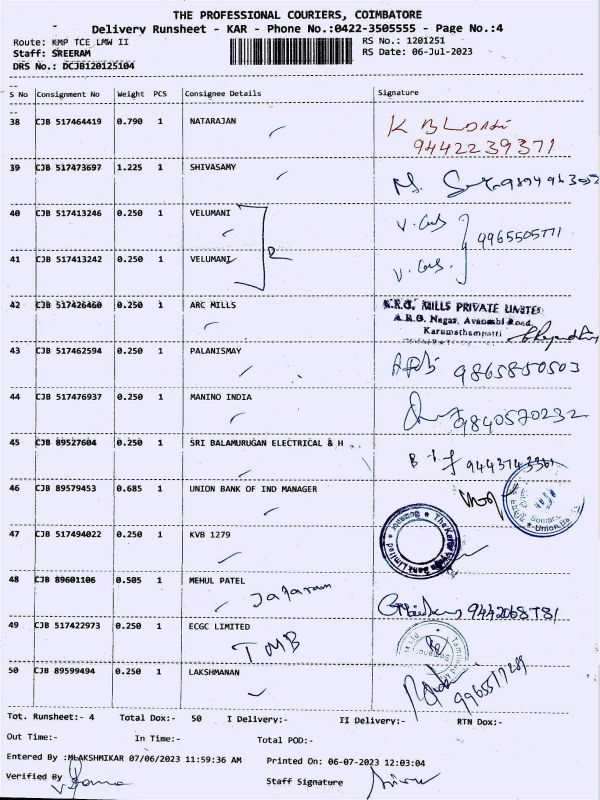 THE PROFESSIONAL COURIERS, COIMBATORE
Delivery Runsheet - KAR - Phone No.:0422-3505555 - Page No.:4
Route: KMP TCE LMW II
RS No.: 1201251
Staff: SREERAM
RS Date: 06-Jul-2023
DRS No.: DCJB120125104
S No Consignment No Weight PCS Consignee Details Signature
38 CJB 517464419 0.790 1 NATARAJAN
9442239371
39 CJB 517473697 1.225 1 SHIVASAMY
40 CJB 517413246 0.250 1 VELUMANI
9965505771
41 CJB 517413242 0.250 1 VELUMANI
42 CJB 517426460 0.250 1 ARC MILLS
MILLS PRIVATE LIMITED
Nagar, Avanashi Road,
Karumathampatti
43 CJB 517462594 0.250 1 PALANISMAY
9865850503
44 CJB 517476937 0.250 1 MANINO INDIA
9840570232
45 CJB 89527604 0.250 1 SRI BALAMURUGAN ELECTRICAL & H
46 CJB 89579453 0.685 1 UNION BANK OF IND MANAGER
Union Ba
47 CJB 517494022 0.250 1 KVB 1279
48 CJB 89601106 0.505 1 MEHUL PATEL
9442068781
49 CJB 517422973 0.250 1 ECGC LIMITED
TMB
50 CJB 89599494 0.250 1 LAKSHMANAN
Tot. Runsheet:- 4 Total Dox:- 50 I Delivery:- II Delivery:- RTN Dox:-
Out Time:- In Time:- Total POD:-
Entered By :MLAKSHMIKAR 07/06/2023 11:59:36 AM Printed On: 06-07-2023 12:03:04
Verified By Staff Signature